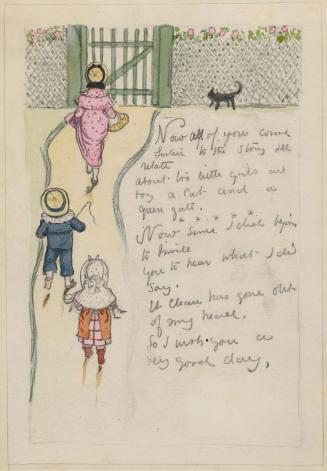 Now all of you come
listen to the story I'll
relate
about two little girls and
boy a cat and a
green gate.
* * * * *
Now since I shall begin
to divide
you to hear what I did
say.
It clean has gone out
of my head.
So I wish you a
very good day,